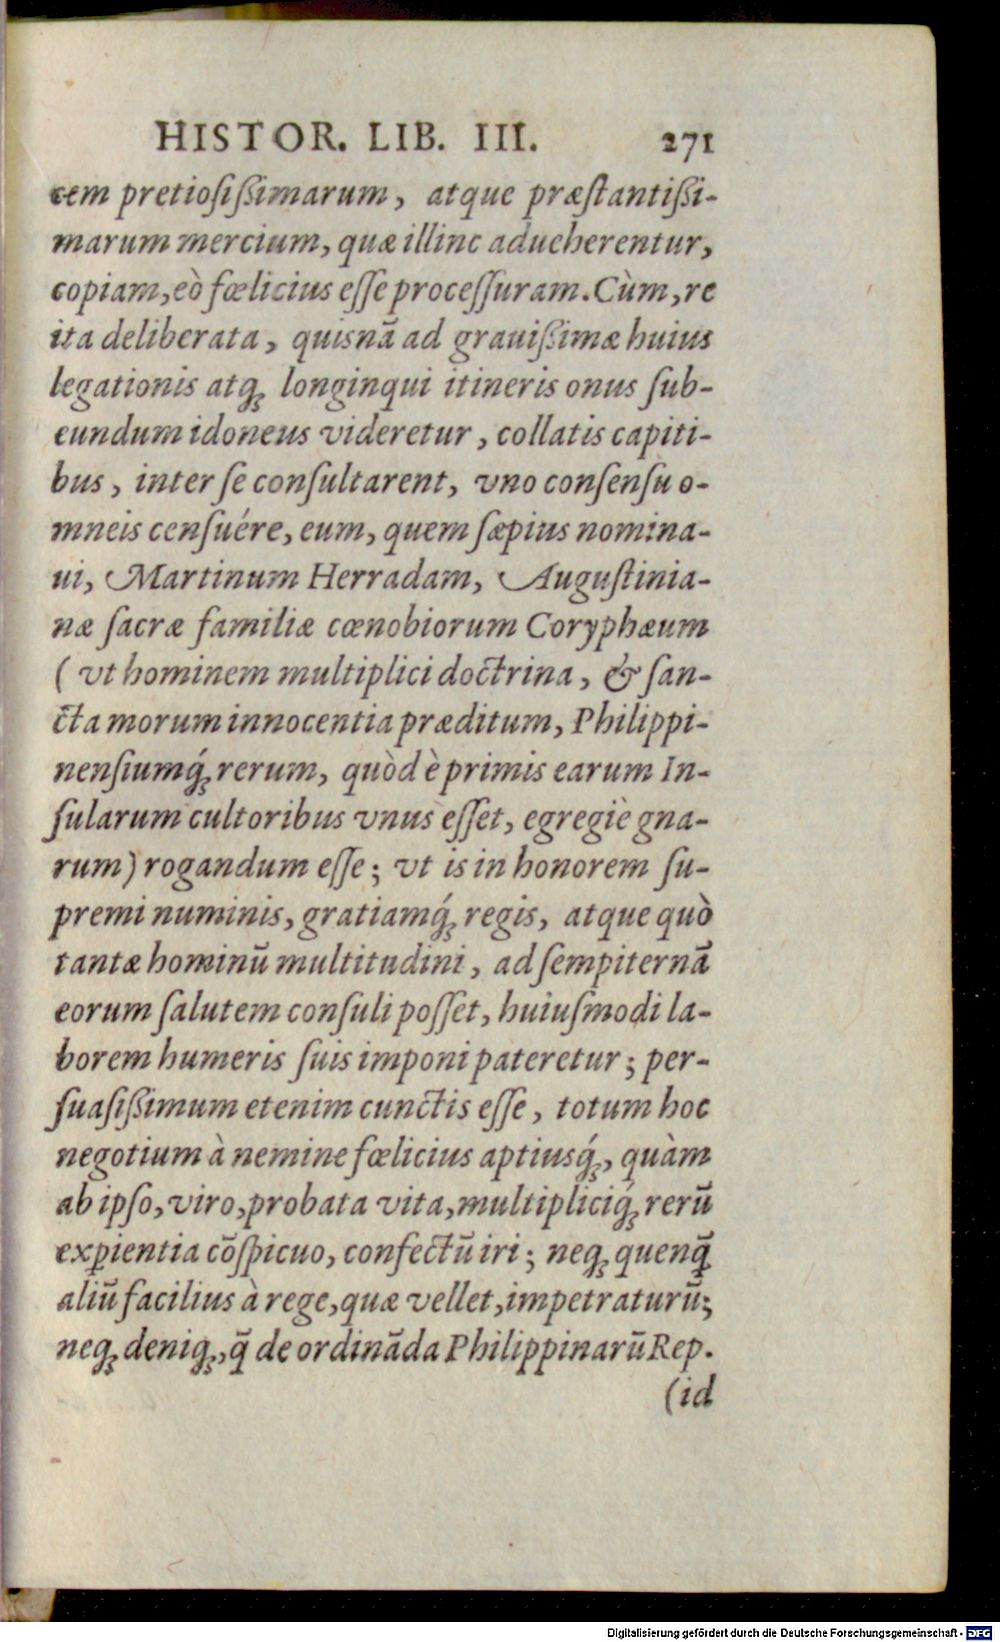 HISTOR. LIB. III. 271
cem pretiosißimarum, atque præstantißi-
marum mercium, quæ illinc adueherentur,
copiam, eò fœlicius esse processuram. Cùm, re
ita deliberata, quisnā ad grauißimæ huius
legationis atq́ꝫ longinqui itineris onus sub-
eundum idoneus videretur, collatis capiti-
bus, inter se consultarent, vno consensu o-
mneis censuére, eum, quem sæpius nomina-
ui, Martinum Herradam, Augustinia-
næ sacræ familiæ cœnobiorum Coryphæum
(vt hominem multiplici doctrina, & san-
cta morum innocentia præditum, Philippi-
nensiumq́ꝫ rerum, quòd è primis earum In-
sularum cultoribus vnus esset, egregiè gna-
rum) rogandum esse; vt is in honorem su-
premi numinis, gratiamq́ꝫ regis, atque quò
tantæ hominū multitudini, ad sempiternā
eorum salutem consuli posset, huiusmodi la-
borem humeris suis imponi pateretur; per-
suasißimum etenim cunctis esse, totum hoc
negotium à nemine fœlicius aptiusq́ꝫ, quàm
ab ipso, viro, probata vita, multipliciq́ꝫ rerū
exꝑientia cōspicuo, confectū iri; neqꝫ quenq̄
aliū facilius à rege, quæ vellet, impetraturū;
neqꝫ deniqꝫ, q̄ de ordināda Philippinarū Rep.
(id
Digitalisierung gefördert durch die Deutsche Forschungsgemeinschaft - DFG